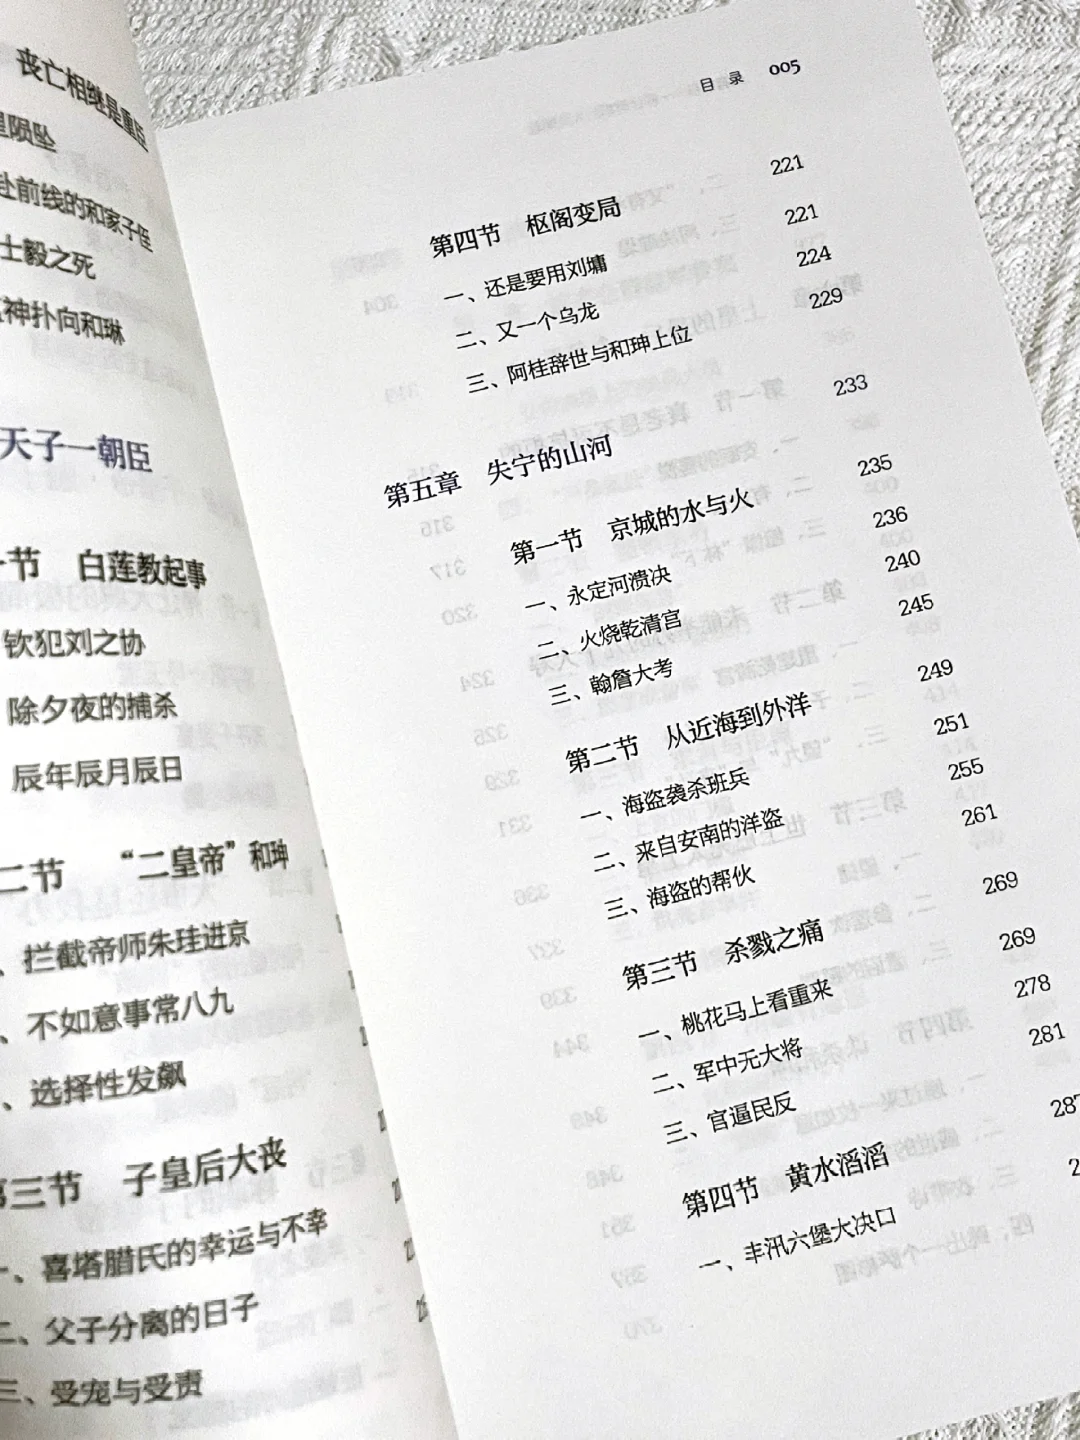 丧亡相继是重臣
陨坠
赴前线的和家子侄
士毅之死
神扑向和琳
天子一朝臣
节 白莲教起事
钦犯刘之协
除夕夜的捕杀
辰年辰月辰日
二节 “二皇帝”和珅
、拦截帝师朱珪进京
、不如意事常八九
、选择性发飙
第三节 子皇后大丧
一、喜塔腊氏的幸运与不幸
二、父子分离的日子
三、受宠与受责
目录 005
第四节 枢阁变局 221
一、还是要用刘墉 221
二、又一个乌龙 224
三、阿桂辞世与和珅上位 229
第五章 失宁的山河 233
第一节 京城的水与火 235
一、永定河溃决 236
二、火烧乾清宫 240
三、翰詹大考 245
第二节 从近海到外洋 249
一、海盗袭杀班兵 251
二、来自安南的洋盗 255
三、海盗的帮伙 261
第三节 杀戮之痛 269
一、桃花马上看重来 269
二、军中无大将 278
三、官逼民反 281
第四节 黄水滔滔 287
一、丰汛六堡大决口